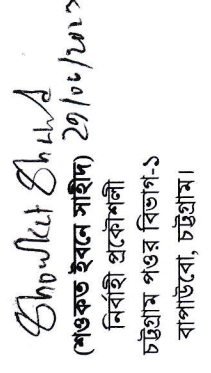 Showkut
(শওকত ইবনে সাহীদ)
নির্বাহী প্রকৌশলী
চট্টগ্রাম পওর বিভাগ-১
বাপাউবো, চট্টগ্রাম।